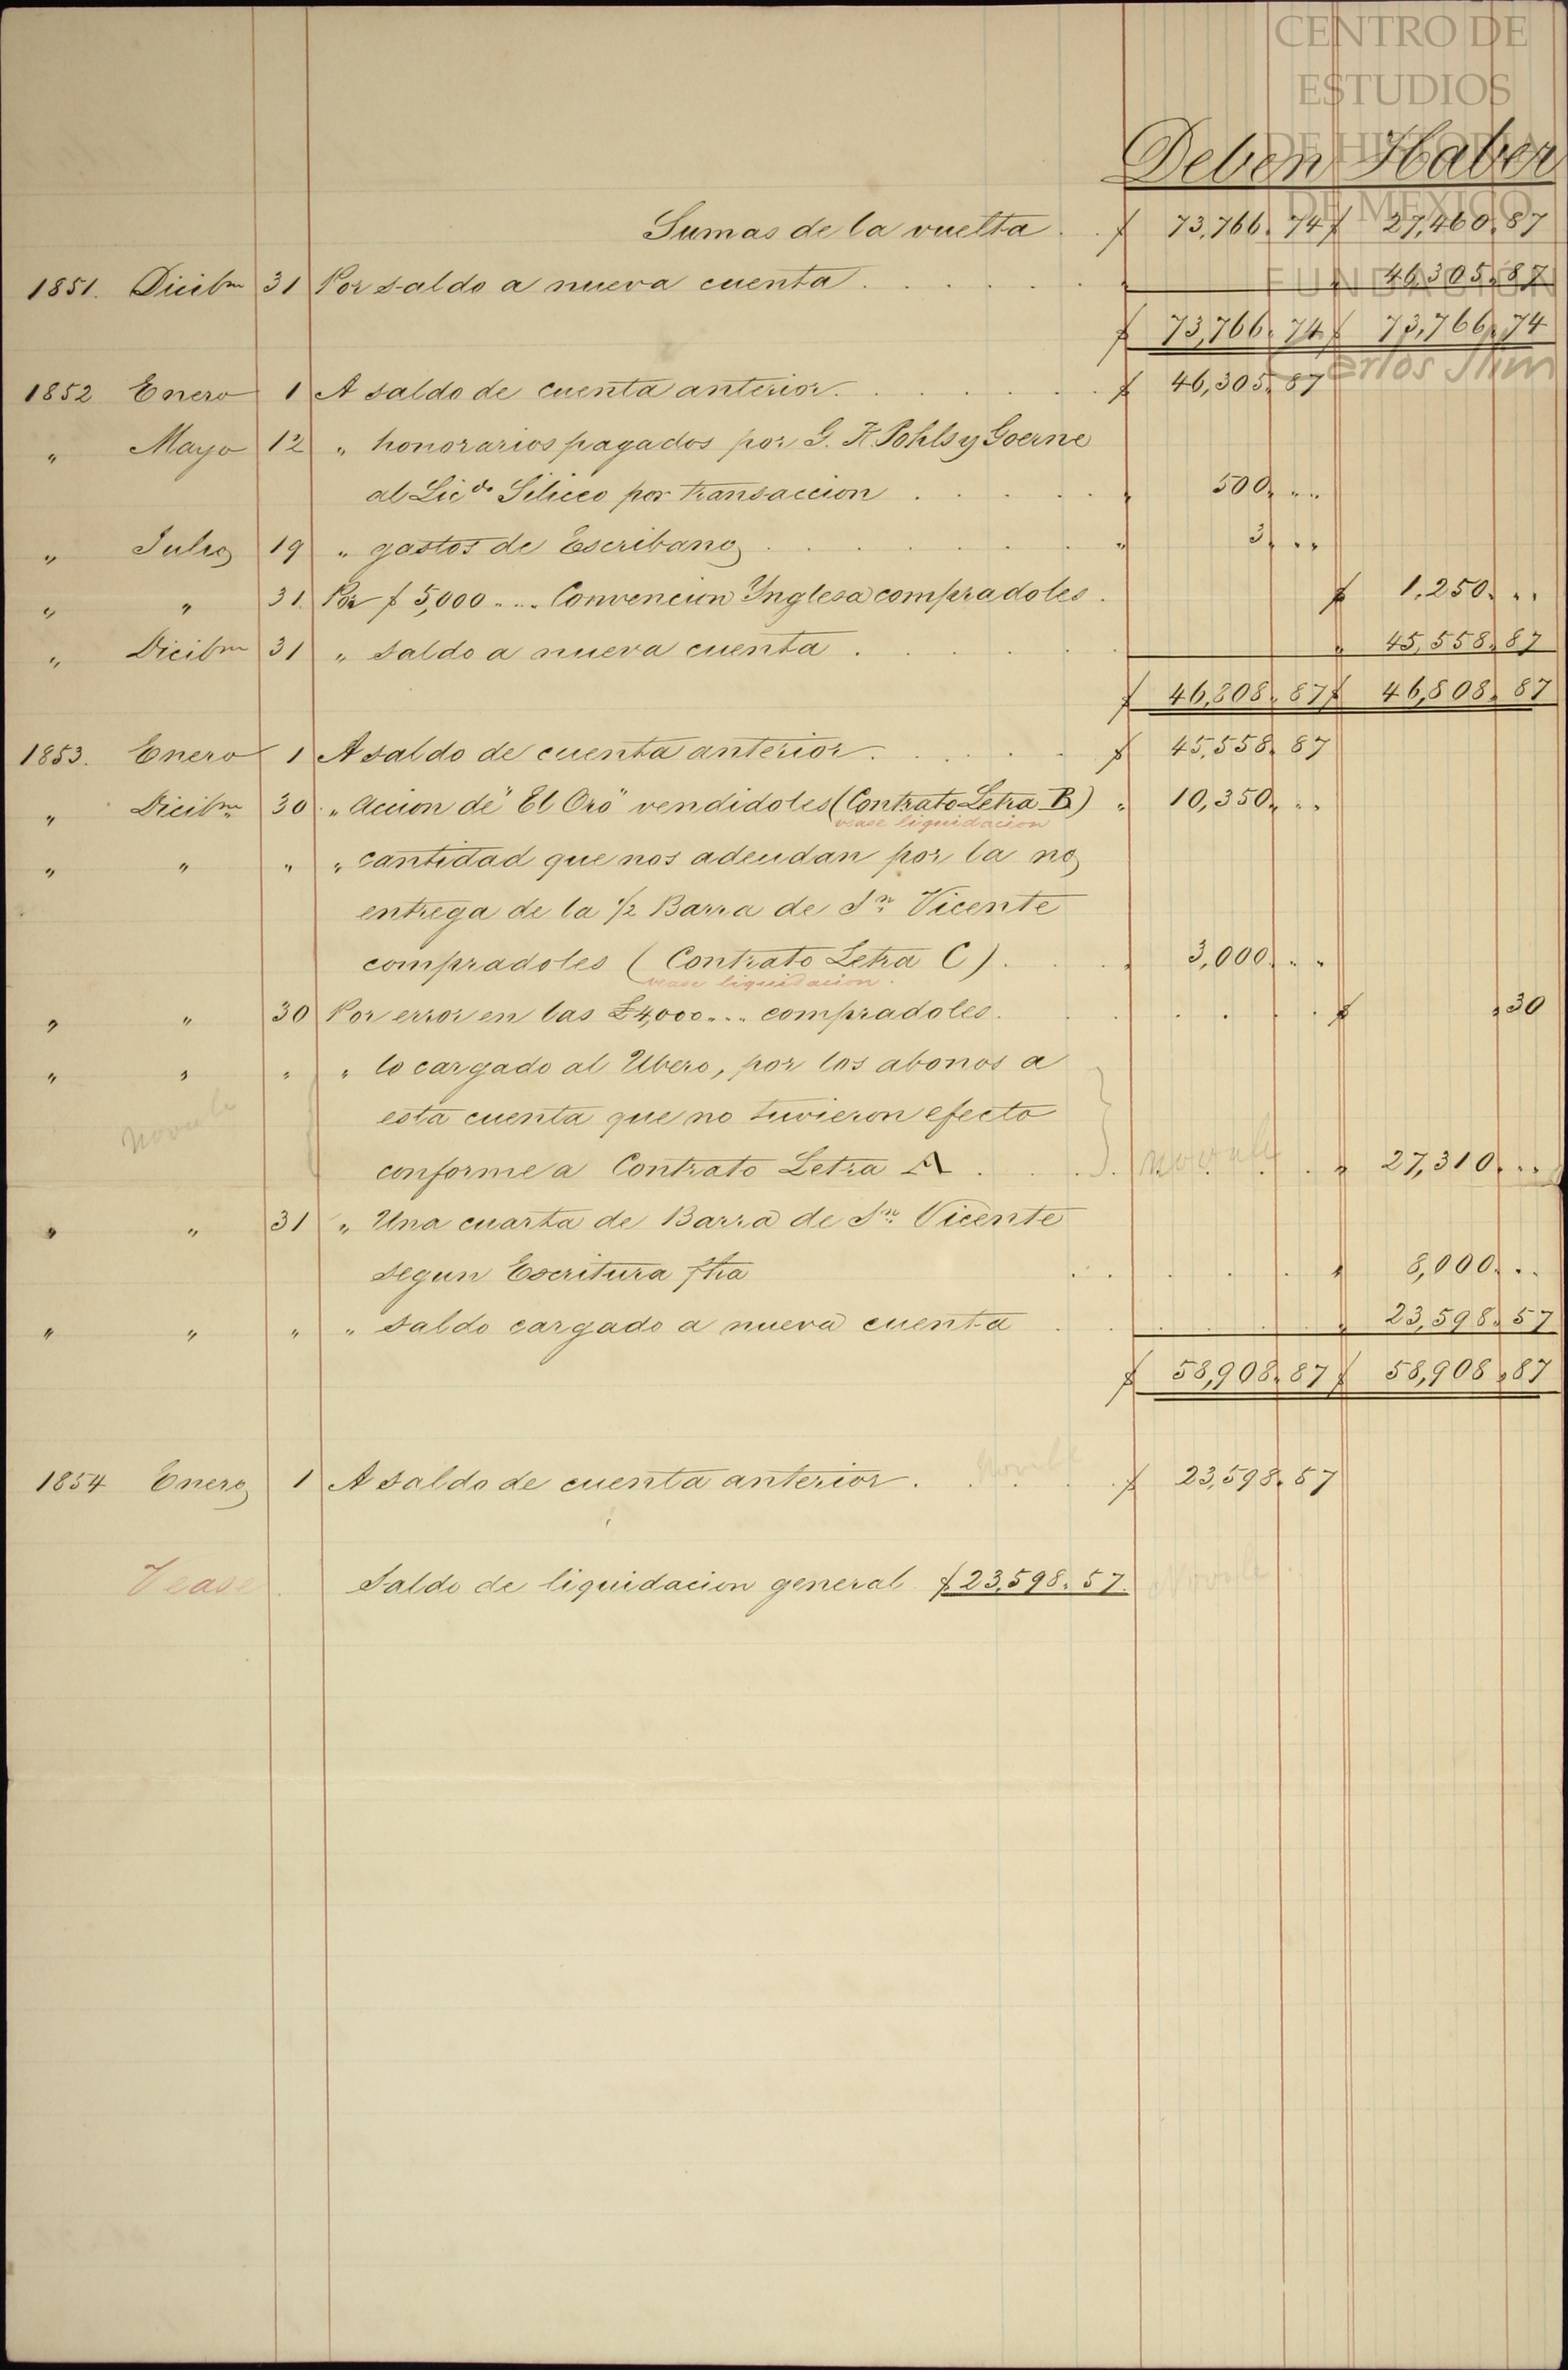 CENTRO DE
ESTUDIOS
DE HISTORIA
DE MEXICO
FUNDACIÓN
Carlos Slim
Deben Haber
Sumas de la vuelta . . $ 73,766. 74 $ 27,460. 87
1851. Dicibre 31 Por saldo a nueva cuenta . . . . . . " 46,305. 87
$ 73,766. 74 $ 73,766. 74
1852 Enero 1 A saldo de cuenta anterior. . . . . . $ 46,305. 87
" Mayo 12 " honorarios pagados por G. K. Pohls y Goerne
al Licdo Siliceo por transaccion . . . . . " 500. " "
" Julio 19 " gastos de Escribano . . . . . . . " 3. " "
" " 31. Por $ 5,000 .... Convencion Ynglesa compradoles . $ 1,250. " "
" Dicibre 31 " saldo a nueva cuenta . . . . . " 45,558. 87
$ 46,808. 87 $ 46,808. 87
1853. Enero 1 A saldo de cuenta anterior. . . . . $ 45,558. 87
" Dicibre 30 " Accion de "El Oro" vendidoles (Contrato Letra B) " 10,350. " "
vease liquidacion
" " " " cantidad que nos adeudan por la no
entrega de la 1/2 Barra de Sn. Vicente
compradoles (Contrato Letra C) . . . . " 3,000. " "
vease liquidacion.
" " 30 Por error en las £4,000 ... compradoles. . . . . . $ " 30
" " " " lo cargado al Ubero, por los abonos a
esta cuenta que no tuvieron efecto
novale
conforme a Contrato Letra A . . . . novale " 27,310. " "
" " 31 " Una cuarta de Barra de Sn. Vicente
segun Escritura fha . . . . . " 8,000. " "
" " " " saldo cargado a nueva cuenta . . . . . " 23,598. 57
$ 58,908. 87 $ 58,908. 87
1854 Enero 1 A saldo de cuenta anterior . . . . . $ 23,598. 57
Vease. Saldo de liquidacion general. $ 23,598. 57.